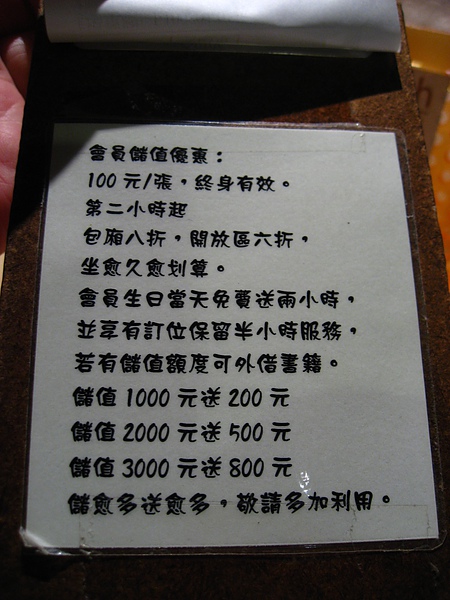 會員儲值優惠：
100 元/張，終身有效。
第二小時起
包廂八折，開放區六折，
坐愈久愈划算。
會員生日當天免費送兩小時，
並享有訂位保留半小時服務，
若有儲值額度可外借書籍。
儲值 1000 元送 200 元
儲值 2000 元送 500 元
儲值 3000 元送 800 元
儲愈多送愈多，敬請多加利用。